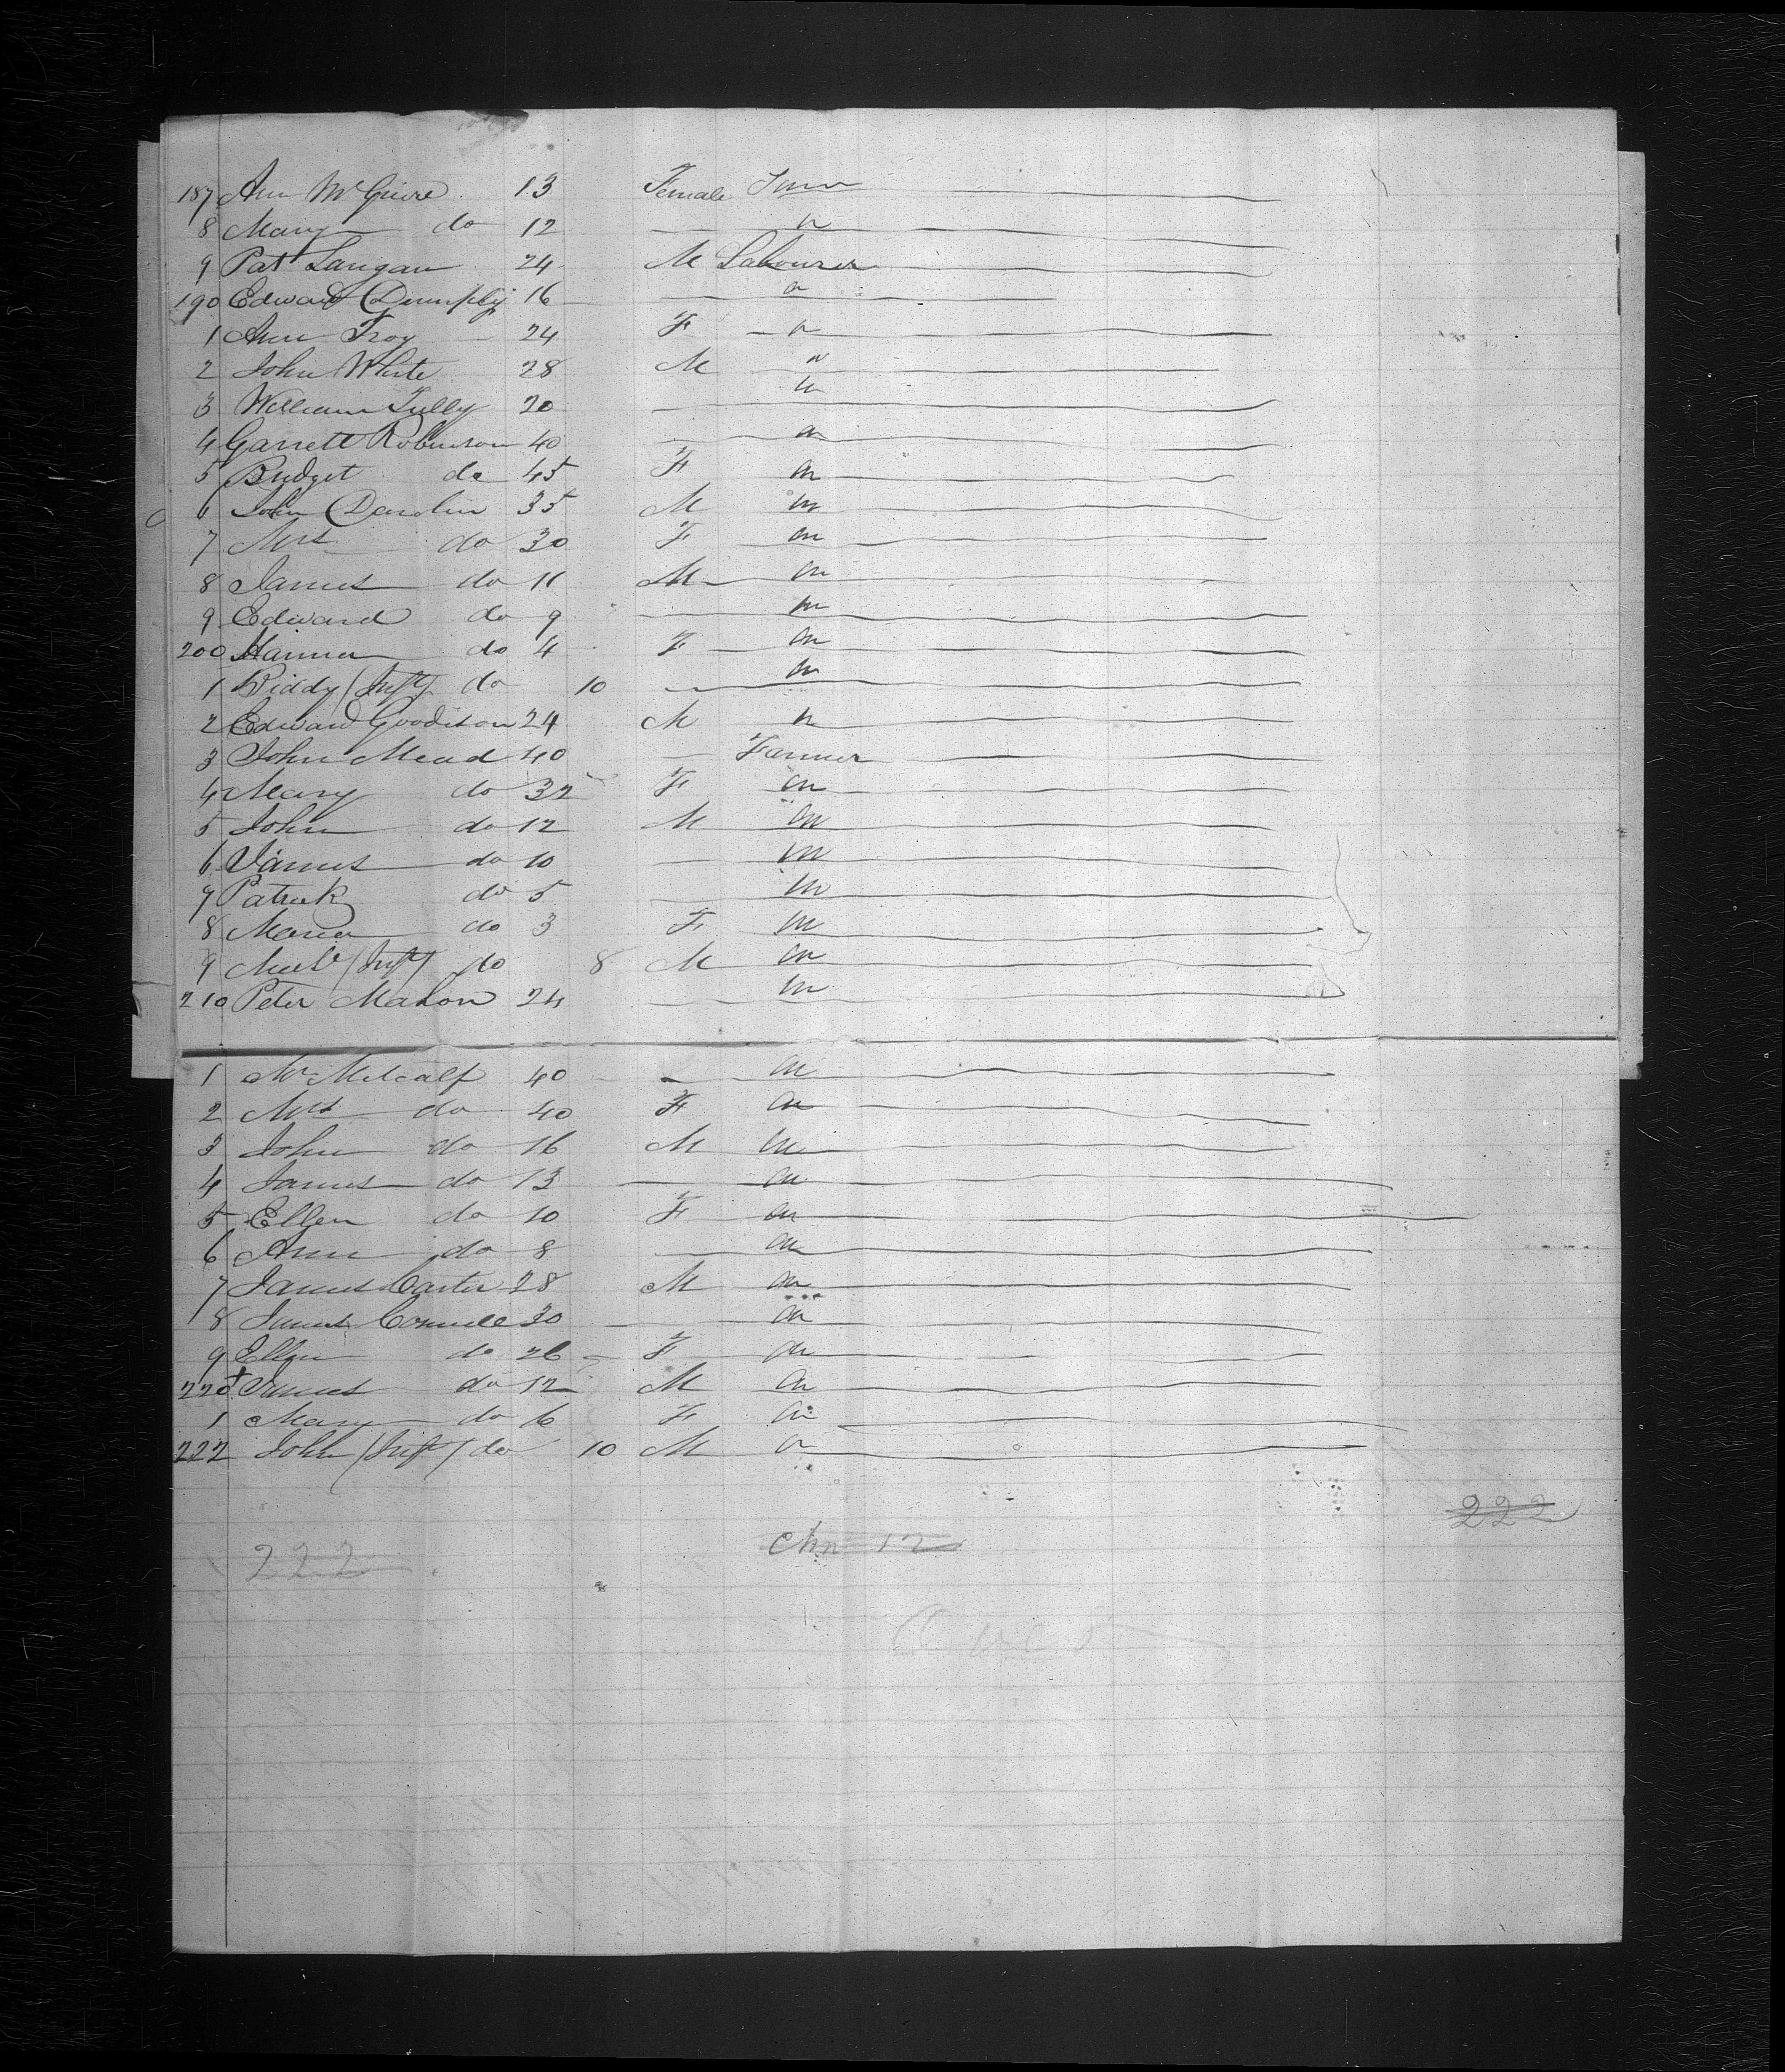 187 Ann McGuire 13 Female
8 Mary do 12 — "
9 Pat Langan 24 M Labourer
190 Edward Dumphy 16 — "
1 Ann Troy 24 F "
2 John White 28 M "
3 William Tully 20 — "
4 Garrett Robinson 40 — "
5 Bridget do 45 F "
6 John Darolin 35 M "
7 Mrs do 30 F "
8 James do 11 M "
9 Edward do 9 — "
200 Hanna do 4 F "
1 Biddy (Inft) do 10 — "
2 Edward Goodison 24 M "
3 John Mead 40 — Farmer
4 Mary do 32 F "
5 John do 12 M "
6 James do 10 — "
7 Patrick do 5 — "
8 Maria do 3 F "
9 (Inft) do 8 M "
210 Peter Mahon 24 — "
1 Mr Metcalf 40 — "
2 Mrs do 40 F "
3 John do 16 M "
4 James do 13 — "
5 Ellen do 10 F "
6 Ann do 8 — "
7 James Carter 28 M "
8 James Connell 30 — "
9 Ellen do 26 F "
220 James do 12 M "
1 Mary do 6 F "
222 John (Inft) do 10 M "
222
222 12